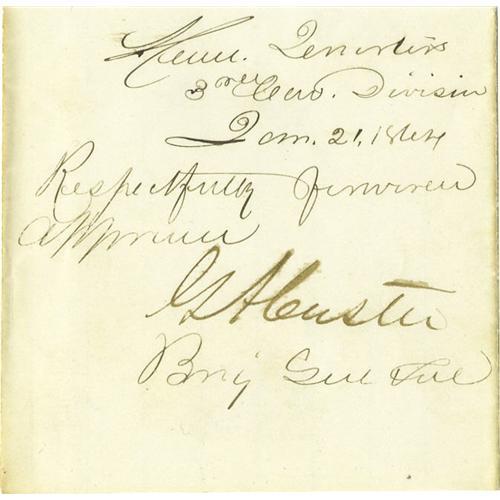 Head Quarters
3rd Cav. Division
Jan. 21, 1864
Respectfully forwarded
Approved
G A Custer
Brig Genl